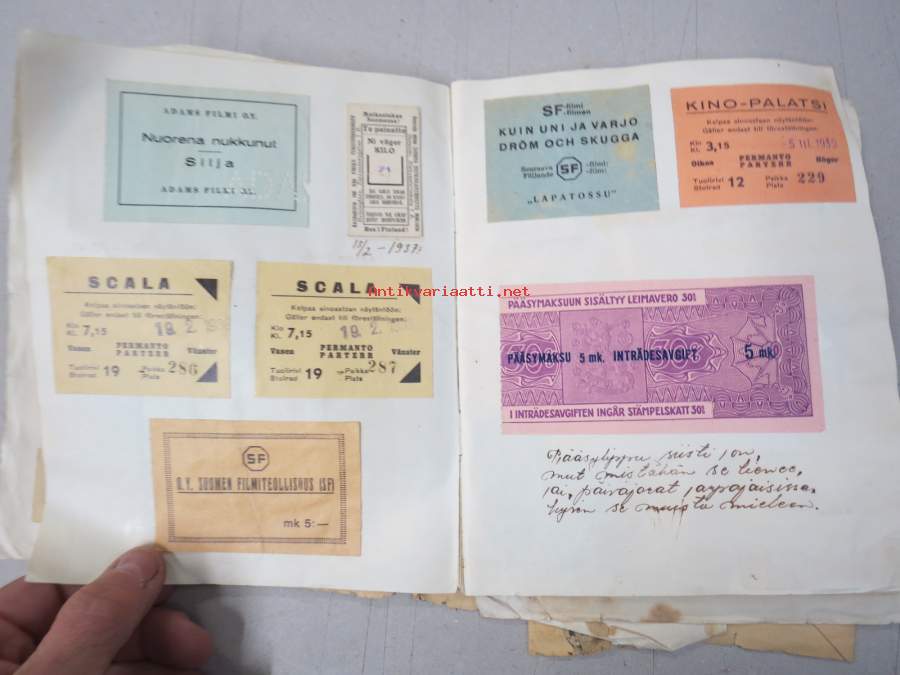 ADAMS FILMI O.Y.
Nuorena nukkunut
Silja
ADAMS FILMI AB.
Te painatte
Ni väger
KILO
15/2 – 1937:
SCALA
Kelpaa ainoastaan näytäntöön:
Gäller endast till föreställningen:
Klo
Kl. 7,15
19. 2.
Vasen PERMANTO Vänster
PARTERR
Tuolirivi
Stolrad 19
Paikka
Plats 286
SCALA
Kelpaa ainoastaan näytäntöön:
Gäller endast till föreställningen:
Klo
Kl. 7,15
19. 2.
Vasen PERMANTO Vänster
PARTERR
Tuolirivi
Stolrad 19
Paikka
Plats 287
SF
O.Y. SUOMEN FILMITEOLLISUUS (SF)
mk 5:—
SF-filmi
-filmen
KUIN UNI JA VARJO
DRÖM OCH SKUGGA
Seuraava
Följande SF -filmi:
-film:
„LAPATOSSU"
KINO-PALATSI
Kelpaa ainoastaan näytäntöön:
Gäller endast till föreställningen:
Klo
Kl. 3,15
-5 III. 1939
Oikea PERMANTO Höger
PARTERR
Tuolirivi
Stolrad 12
Paikka
Plats 229
Antikvariaatti.net
PÄÄSYMAKSUUN SISÄLTYY LEIMAVERO 30%
PÄÄSYMAKSU 5 mk. INTRÄDESAVGIFT 5 mk.
I INTRÄDESAVGIFTEN INGÅR STÄMPELSKATT 30%
Pääsylippu siisti on,
mut mistähän se lienee,
jai, päiväjocat
se muista mieleen.